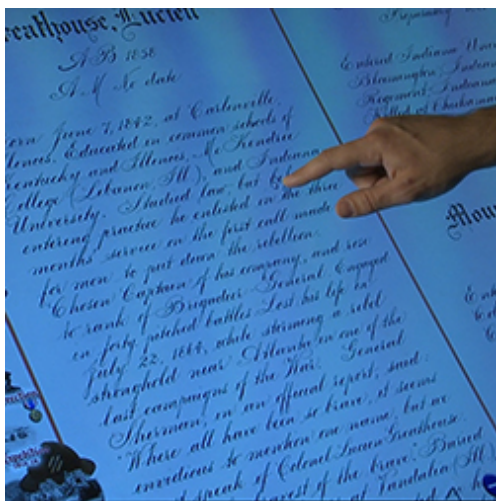 Greathouse, Lucien
A B 1858
A M No date
Born June 7, 1842, at Carlinville,
Illinois. Educated in common schools of
Kentucky and Illinois, McKendree
College (Lebanon Ill), and Indiana
University. Studied law, but
entering practice he enlisted in the three
months' service on the first call made
for men to put down the rebellion.
Chosen Captain of his company, and rose
to rank of Brigadier General Engaged
in forty pitched battles Lost his life in
July 22, 1864, while storming a rebel
stronghold near Atlanta in one of the
last campaigns of the War. General
Sherman, in an official report, said:
"Where all have been so brave, it seems
invidious to mention one name, but we
speak of Colonel Lucien Greathouse.
bravest of the brave." Buried
at Vandalia (Ill)
Preparatory
Entered Indiana
Bloomington Indiana
Regiment Indiana
Killed at Chickamauga